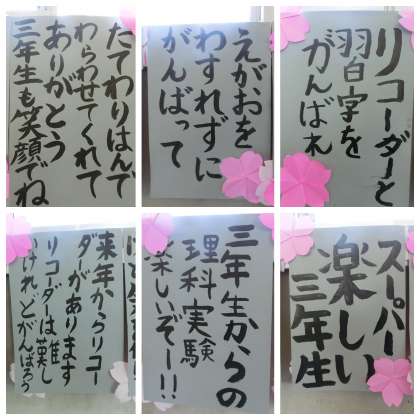 たてわりはんで
わらわせてくれて
ありがとう
三年生も笑顔でね
えがおを
わすれずに
がんばって
リコーダーと
習字を
がんばれ
来年からリコー
ダーがあります
リコーダーは難し
いけれどがんばろう
三年生からの
理科実験
楽しいぞー!!
スーパー
楽しい
三年生